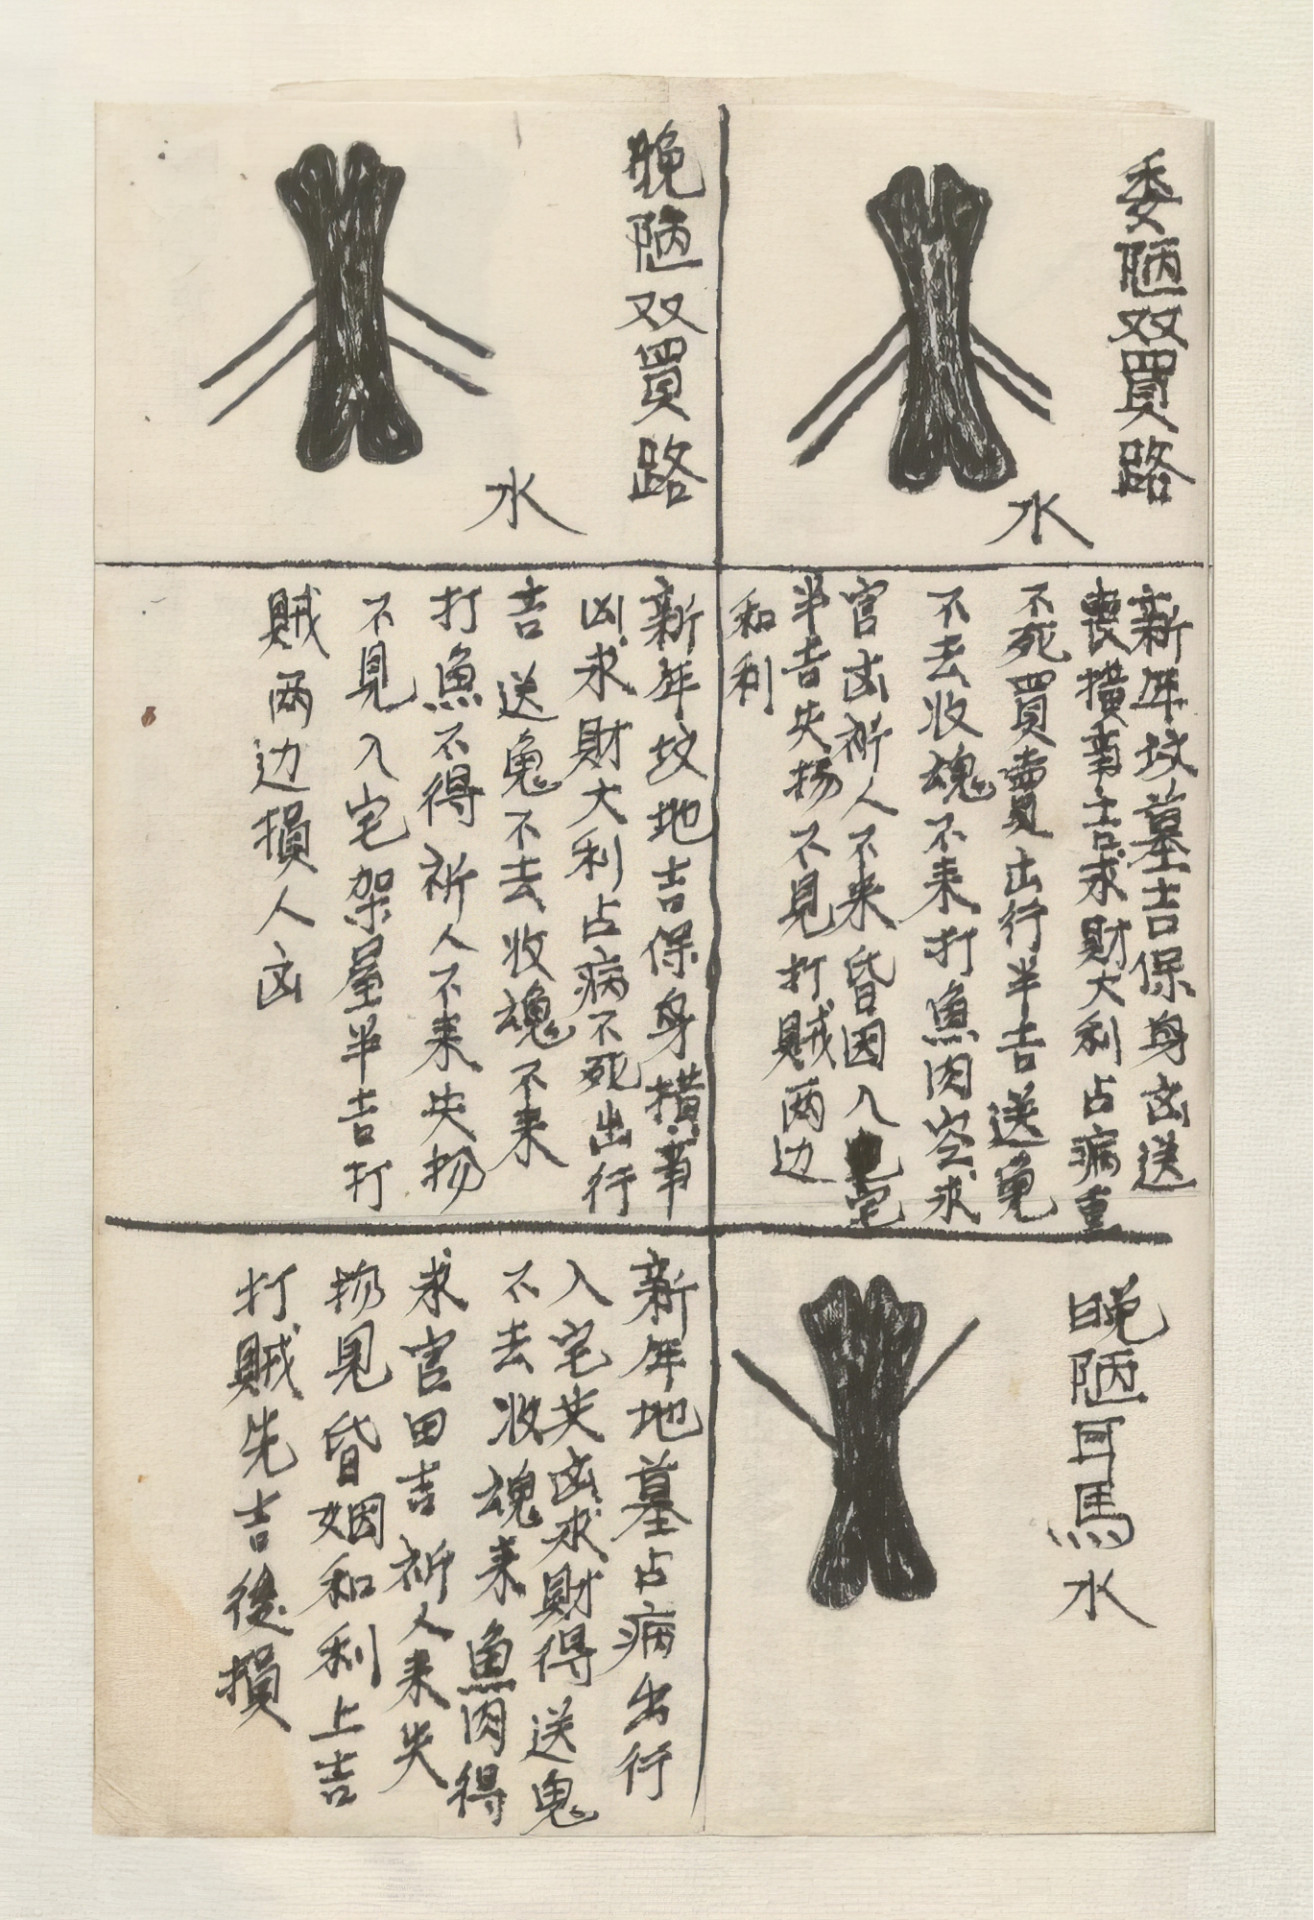 委陋双買路
水
新年坟墓吉保身凶送
喪橫事吉求財大利占病重
不死買賣出行半吉送鬼
不去收魂不来打魚肉空求
官凶祈人不来昏因入宅
半吉失物不見打賊两边
和利
晚陋双買路
水
新年坟地吉保身橫事
凶求財大利占病不死出行
吉送鬼不去收魂不来
打魚不得祈人不来失物
不見入宅架屋半吉打
賊两边損人凶
晚陋耳馬水
新年地墓占病出行
入宅失凶求財得送鬼
不去收魂来魚肉得
求官田吉祈人来失
物見昏姻和利上吉
打賊先吉後損